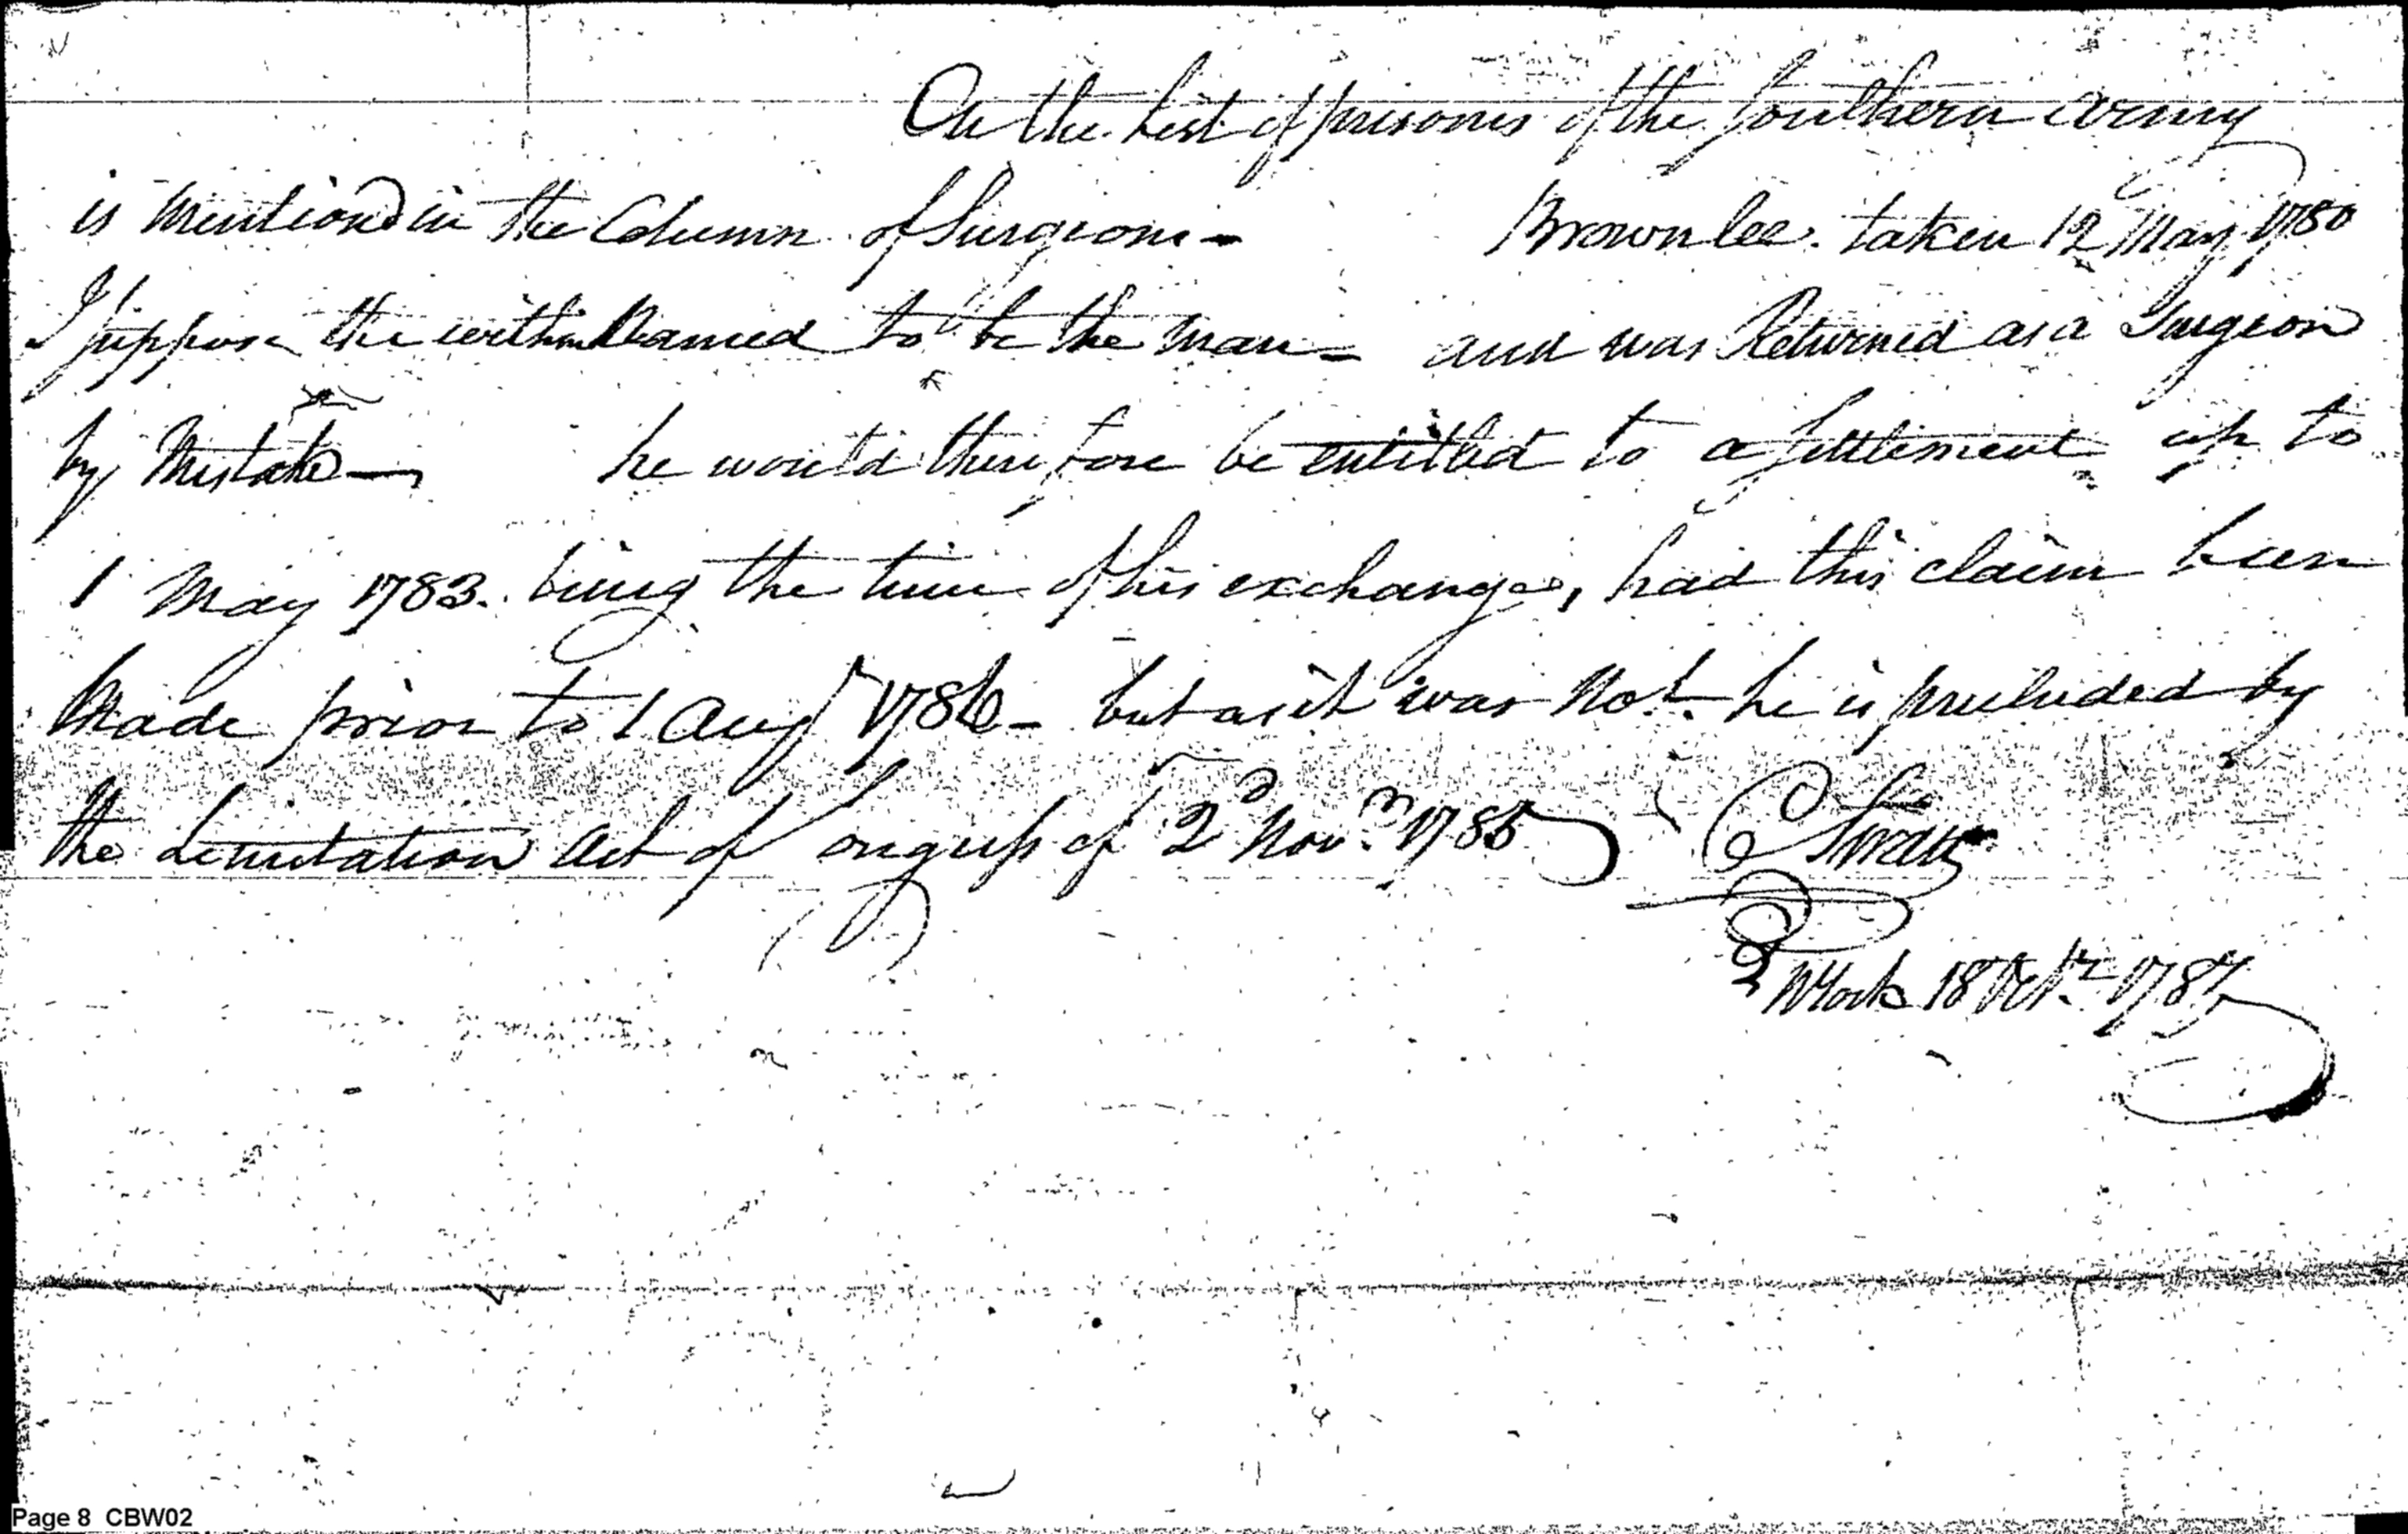 On the List of prisoners of the Southern army
is Mentioned in the Column of Surgeons - Brownlee. taken 12 May 1780
I suppose the within Named to be the man - and was Returned as a Surgeon
by Mistake - he would therefore be entitled to a settlement up to
1 May 1783. being the time of his exchange, had this claim been
Made prior to 1 Augt 1786 - but as it was Not. he is precluded by
the limitation Act of Congress of 2d Novr. 1785
NYork 18 Octr. 1787
Page 8 CBW02